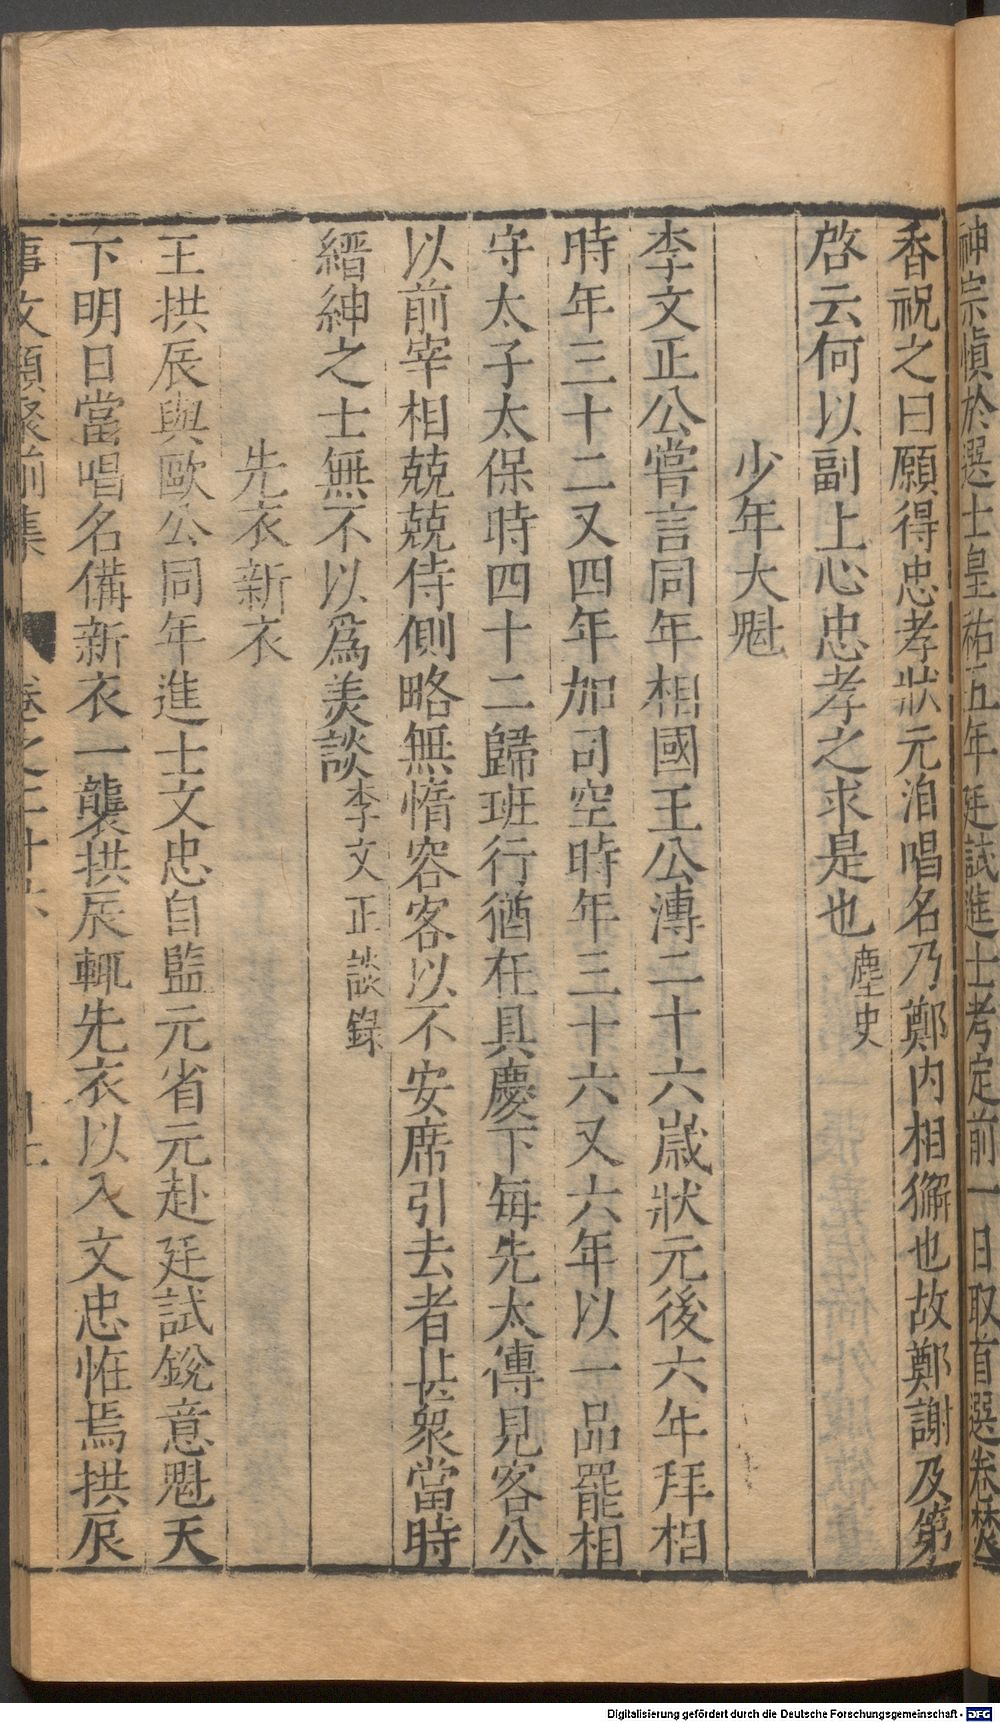 神宗愼於選士皇祐五年廷試進士考定前一日取首選卷焚
香祝之曰願得忠孝狀元洎唱名乃鄭內相獬也故鄭謝及第
啓云何以副上心忠孝之求是也麈史
少年大魁
李文正公嘗言同年相國王公溥二十六歲狀元後六年拜相
時年三十二又四年加司空時年三十六又六年以一品罷相
守太子太保時四十二歸班行猶在具慶下每先太傅見客公
以前宰相兢兢侍側略無惰容客以不安席引去者甚衆當時
縉紳之士無不以爲美談李文正談錄
先衣新衣
王拱辰與歐公同年進士文忠自監元省元赴廷試銳意魁天
下明日當唱名備新衣一襲拱辰輒先衣以入文忠恠焉拱辰
事文類聚前集 卷之二十六
Digitalisierung gefördert durch die Deutsche Forschungsgemeinschaft - DFG